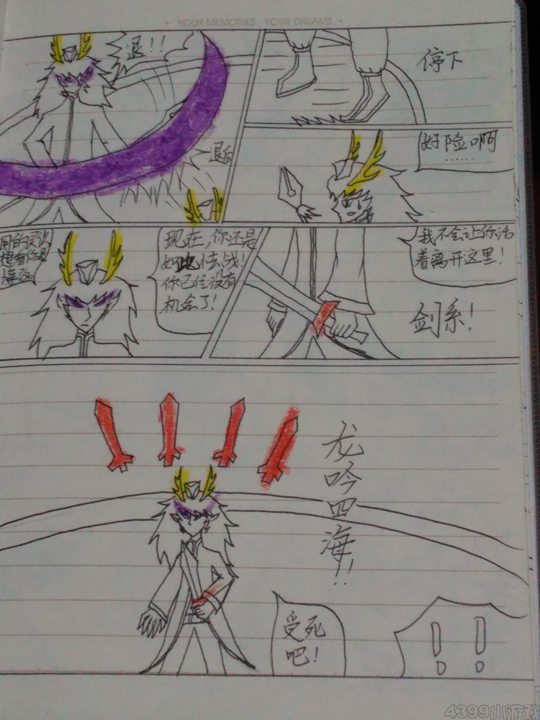 YOUR MEMORIES YOUR DREAMS
退!!
停下
好险啊
......
现在,你还是
如此怯战!
你已经没有
机会了!
我不会让你活
着离开这里!
剑系!
龙吟四海!!
受死
吧!
!!
4399小游戏